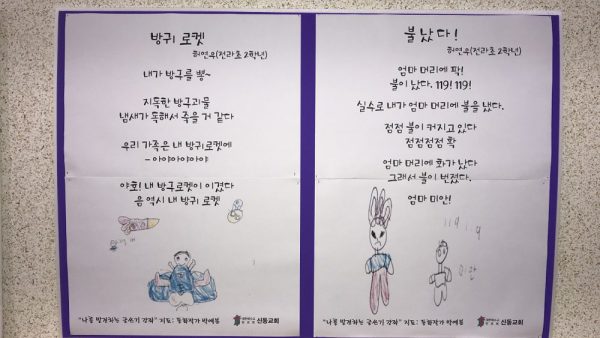 방귀 로켓
허연우(전라초 2학년)
내가 방구를 뿡~
지독한 방구괴물
냄새가 독해서 죽을 거 같다
우리 가족은 내 방귀로켓에
- 아이아아아야
야호! 내 방구로켓이 이겼다
음 역시 내 방귀 로켓
"나를 발견하는 글쓰기 강좌" 지도: 동화작가 박예분
신동교회
불 났 다 !
허연우(전라초 2학년)
엄마 머리에 팍!
불이 났다. 119! 119!
실수로 내가 엄마 머리에 불을 냈다.
점점 불이 커지고 있다
점점점점 확
엄마 머리에 화가 났다
그래서 불이 번졌다.
엄마 미안!
119! 9
미안
"나를 발견하는 글쓰기 강좌" 지도: 동화작가 박예분
신동교회